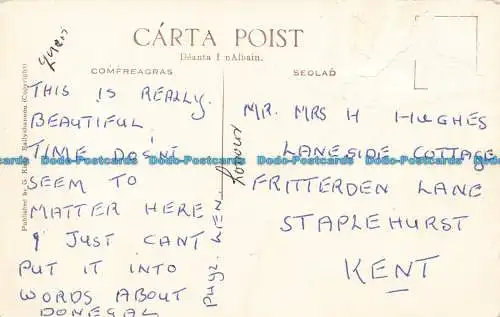 CÁRTA POIST
Déanta I nAlbain.
COMFREAGRAS
SEOLAḊ
THIS IS REALLY
BEAUTIFUL
TIME DOSNT
SEEM TO
MATTER HERE
I JUST CANT
PUT IT INTO
WORDS ABOUT
DONEGAL
MR. MRS H HUGHES
LANESIDE COTTAGE
FRITTERDEN LANE
STAPLEHURST
KENT
Ballyshannon (Copyright)
Published by G.
Dodo-Postcards Dodo-Postcards Dodo-Postcards Dodo-Postcards